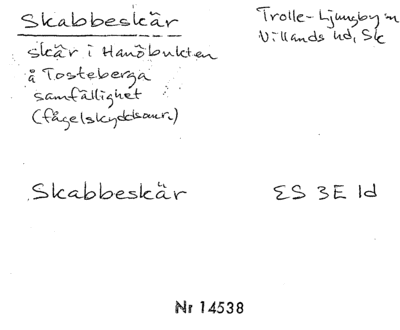 Skabbeskär
Trolle-Ljungby sn
Villands hd, Sk
skär i Hanöbukten
å Tosteberga
samfällighet
(fågelskyddsomr.)
Skabbeskär
ES 3E 1d
Nr 14538